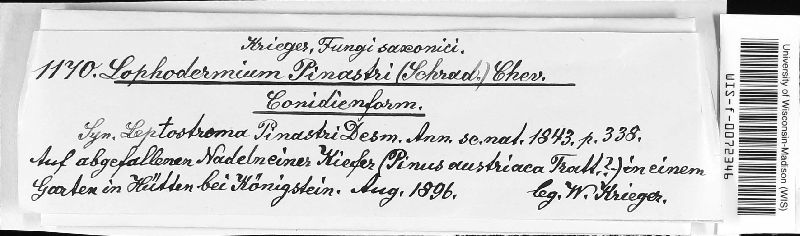 Krieger, Fungi saxonici.
1170. Lophodermium Pinastri (Schrad.) Chev.
Conidienform.
Syn. Leptostroma Pinastri Desm. Ann. sc. nat. 1843. p. 338.
Auf abgefallenen Nadeln einer Kiefer (Pinus austriaca Tratt.?) in einem
Garten in Hütten bei Königstein. Aug. 1896. leg. W. Krieger.
WIS-f-0072346
University of Wisconsin-Madison (WIS)